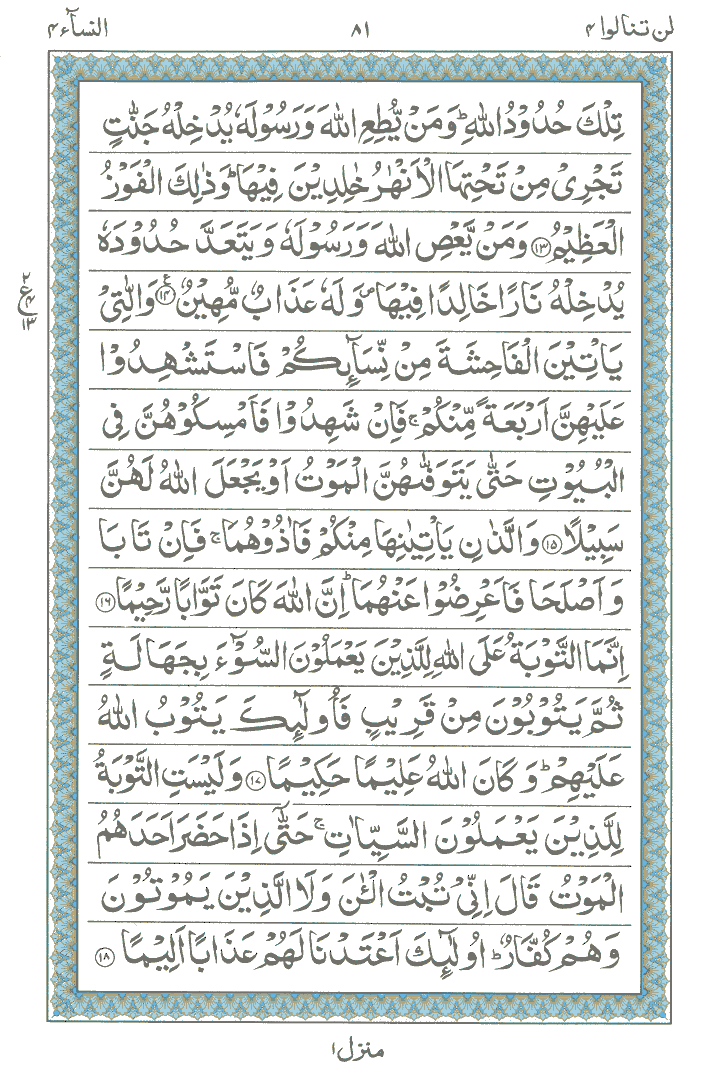 لن تنالوا ۴ ۸۱ النسآء ۴
تِلْكَ حُدُوْدُ اللّٰهِ ؕ وَمَنْ يُّطِعِ اللّٰهَ وَرَسُوْلَهٗ يُدْخِلْهُ جَنّٰتٍ
تَجْرِيْ مِنْ تَحْتِهَا الْاَنْهٰرُ خٰلِدِيْنَ فِيْهَا ؕ وَذٰلِكَ الْفَوْزُ
الْعَظِيْمُ ﴿۱۳﴾ وَمَنْ يَّعْصِ اللّٰهَ وَرَسُوْلَهٗ وَيَتَعَدَّ حُدُوْدَهٗ
يُدْخِلْهُ نَارًا خَالِدًا فِيْهَا ۪ وَلَهٗ عَذَابٌ مُّهِيْنٌ ﴿۱۴﴾ وَالّٰتِيْ
۲
ع
۴
۱۳
يَاْتِيْنَ الْفَاحِشَةَ مِنْ نِّسَآئِكُمْ فَاسْتَشْهِدُوْا
عَلَيْهِنَّ اَرْبَعَةً مِّنْكُمْ ۚ فَاِنْ شَهِدُوْا فَاَمْسِكُوْهُنَّ فِي
الْبُيُوْتِ حَتّٰى يَتَوَفّٰىهُنَّ الْمَوْتُ اَوْ يَجْعَلَ اللّٰهُ لَهُنَّ
سَبِيْلًا ﴿۱۵﴾ وَالَّذٰنِ يَاْتِيٰنِهَا مِنْكُمْ فَاٰذُوْهُمَا ۚ فَاِنْ تَابَا
وَاَصْلَحَا فَاَعْرِضُوْا عَنْهُمَا ؕ اِنَّ اللّٰهَ كَانَ تَوَّابًا رَّحِيْمًا ﴿۱۶﴾
اِنَّمَا التَّوْبَةُ عَلَى اللّٰهِ لِلَّذِيْنَ يَعْمَلُوْنَ السُّوْٓءَ بِجَهَالَةٍ
ثُمَّ يَتُوْبُوْنَ مِنْ قَرِيْبٍ فَاُولٰٓئِكَ يَتُوْبُ اللّٰهُ
عَلَيْهِمْ ؕ وَكَانَ اللّٰهُ عَلِيْمًا حَكِيْمًا ﴿۱۷﴾ وَلَيْسَتِ التَّوْبَةُ
لِلَّذِيْنَ يَعْمَلُوْنَ السَّيِّاٰتِ ۚ حَتّٰىٓ اِذَا حَضَرَ اَحَدَهُمُ
الْمَوْتُ قَالَ اِنِّيْ تُبْتُ الْئٰنَ وَلَا الَّذِيْنَ يَمُوْتُوْنَ
وَهُمْ كُفَّارٌ ؕ اُولٰٓئِكَ اَعْتَدْنَا لَهُمْ عَذَابًا اَلِيْمًا ﴿۱۸﴾
منزل ۱